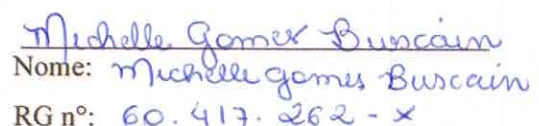 Michelle Gomes Buscain
Nome: Michelle gomes Buscain
RG nº: 60.417.262-x